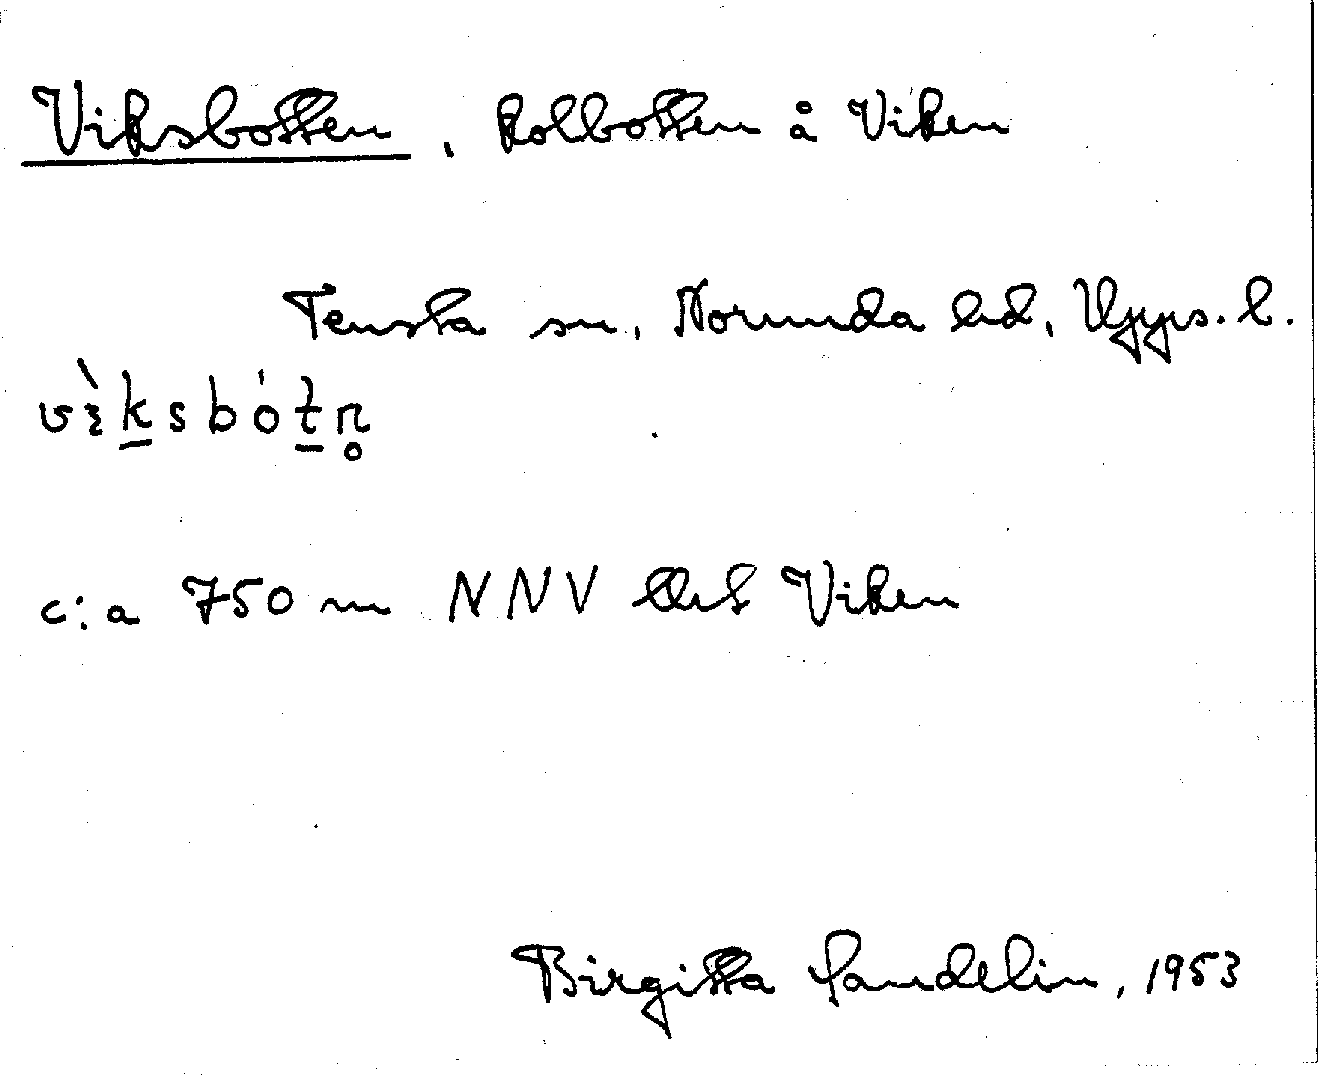 Viksbotten, kolbotten å Viken
Tensta sn, Norunda hd, Upps. l.
vɩ̀ksbót̠n̥
c:a 750 m NNV Viken
Birgitta Sandelin, 1953